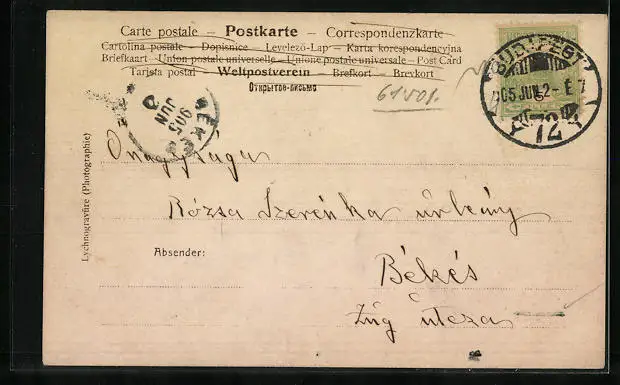 Carte postale – Postkarte – Correspondenzkarte
Cartolina postale – Dopisnice – Levelező-Lap – Karta korespondencyjna
Briefkaart – Union postale universelle – Unione postale universale – Post Card
Tarjeta postal – Weltpostverein – Brefkort – Brevkort
Открытое письмо
61501.
BUDAPEST
905 JUN 2 - E 7
72
BÉKÉS
905
JUN
Őnagysága
Rózsa Szerénka úrleány
Absender:
Békés
Zúg utcza
Lychnogravüre (Photographie)